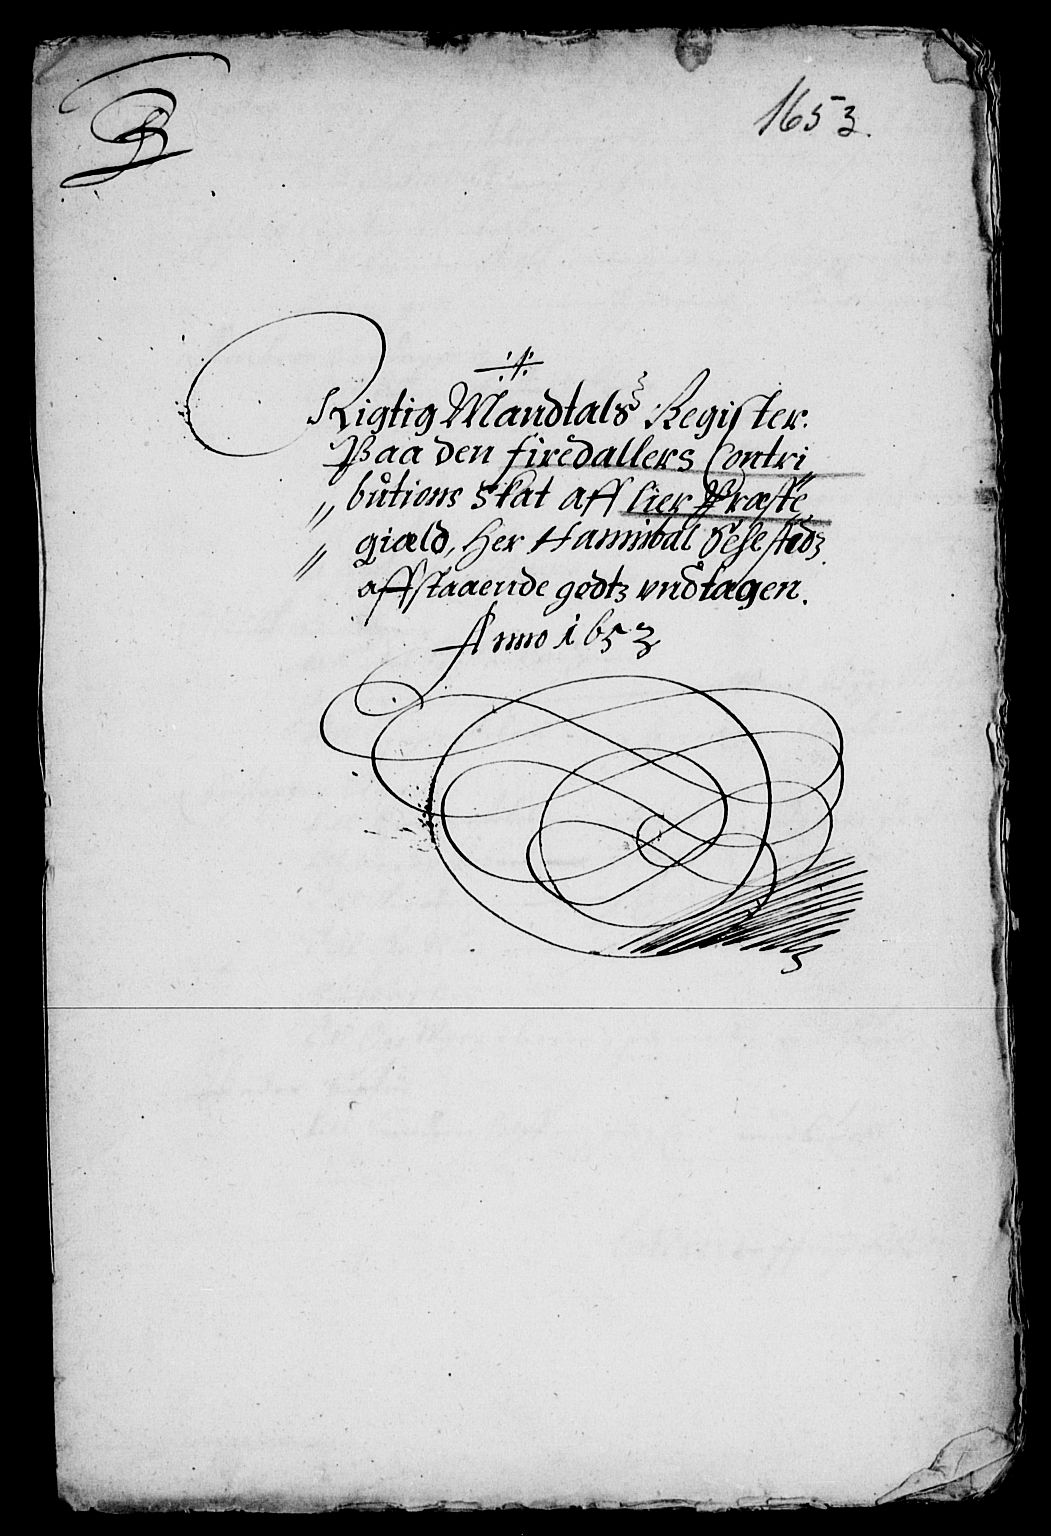 B
1653.
Rigtig Mandtals Register.
Paa den firedallers Contri
bůtions Skat aff Lier Præste
giæld, Her Hannibal Sehestedz
affstaaende godtz vndtagen.
Anno 1653